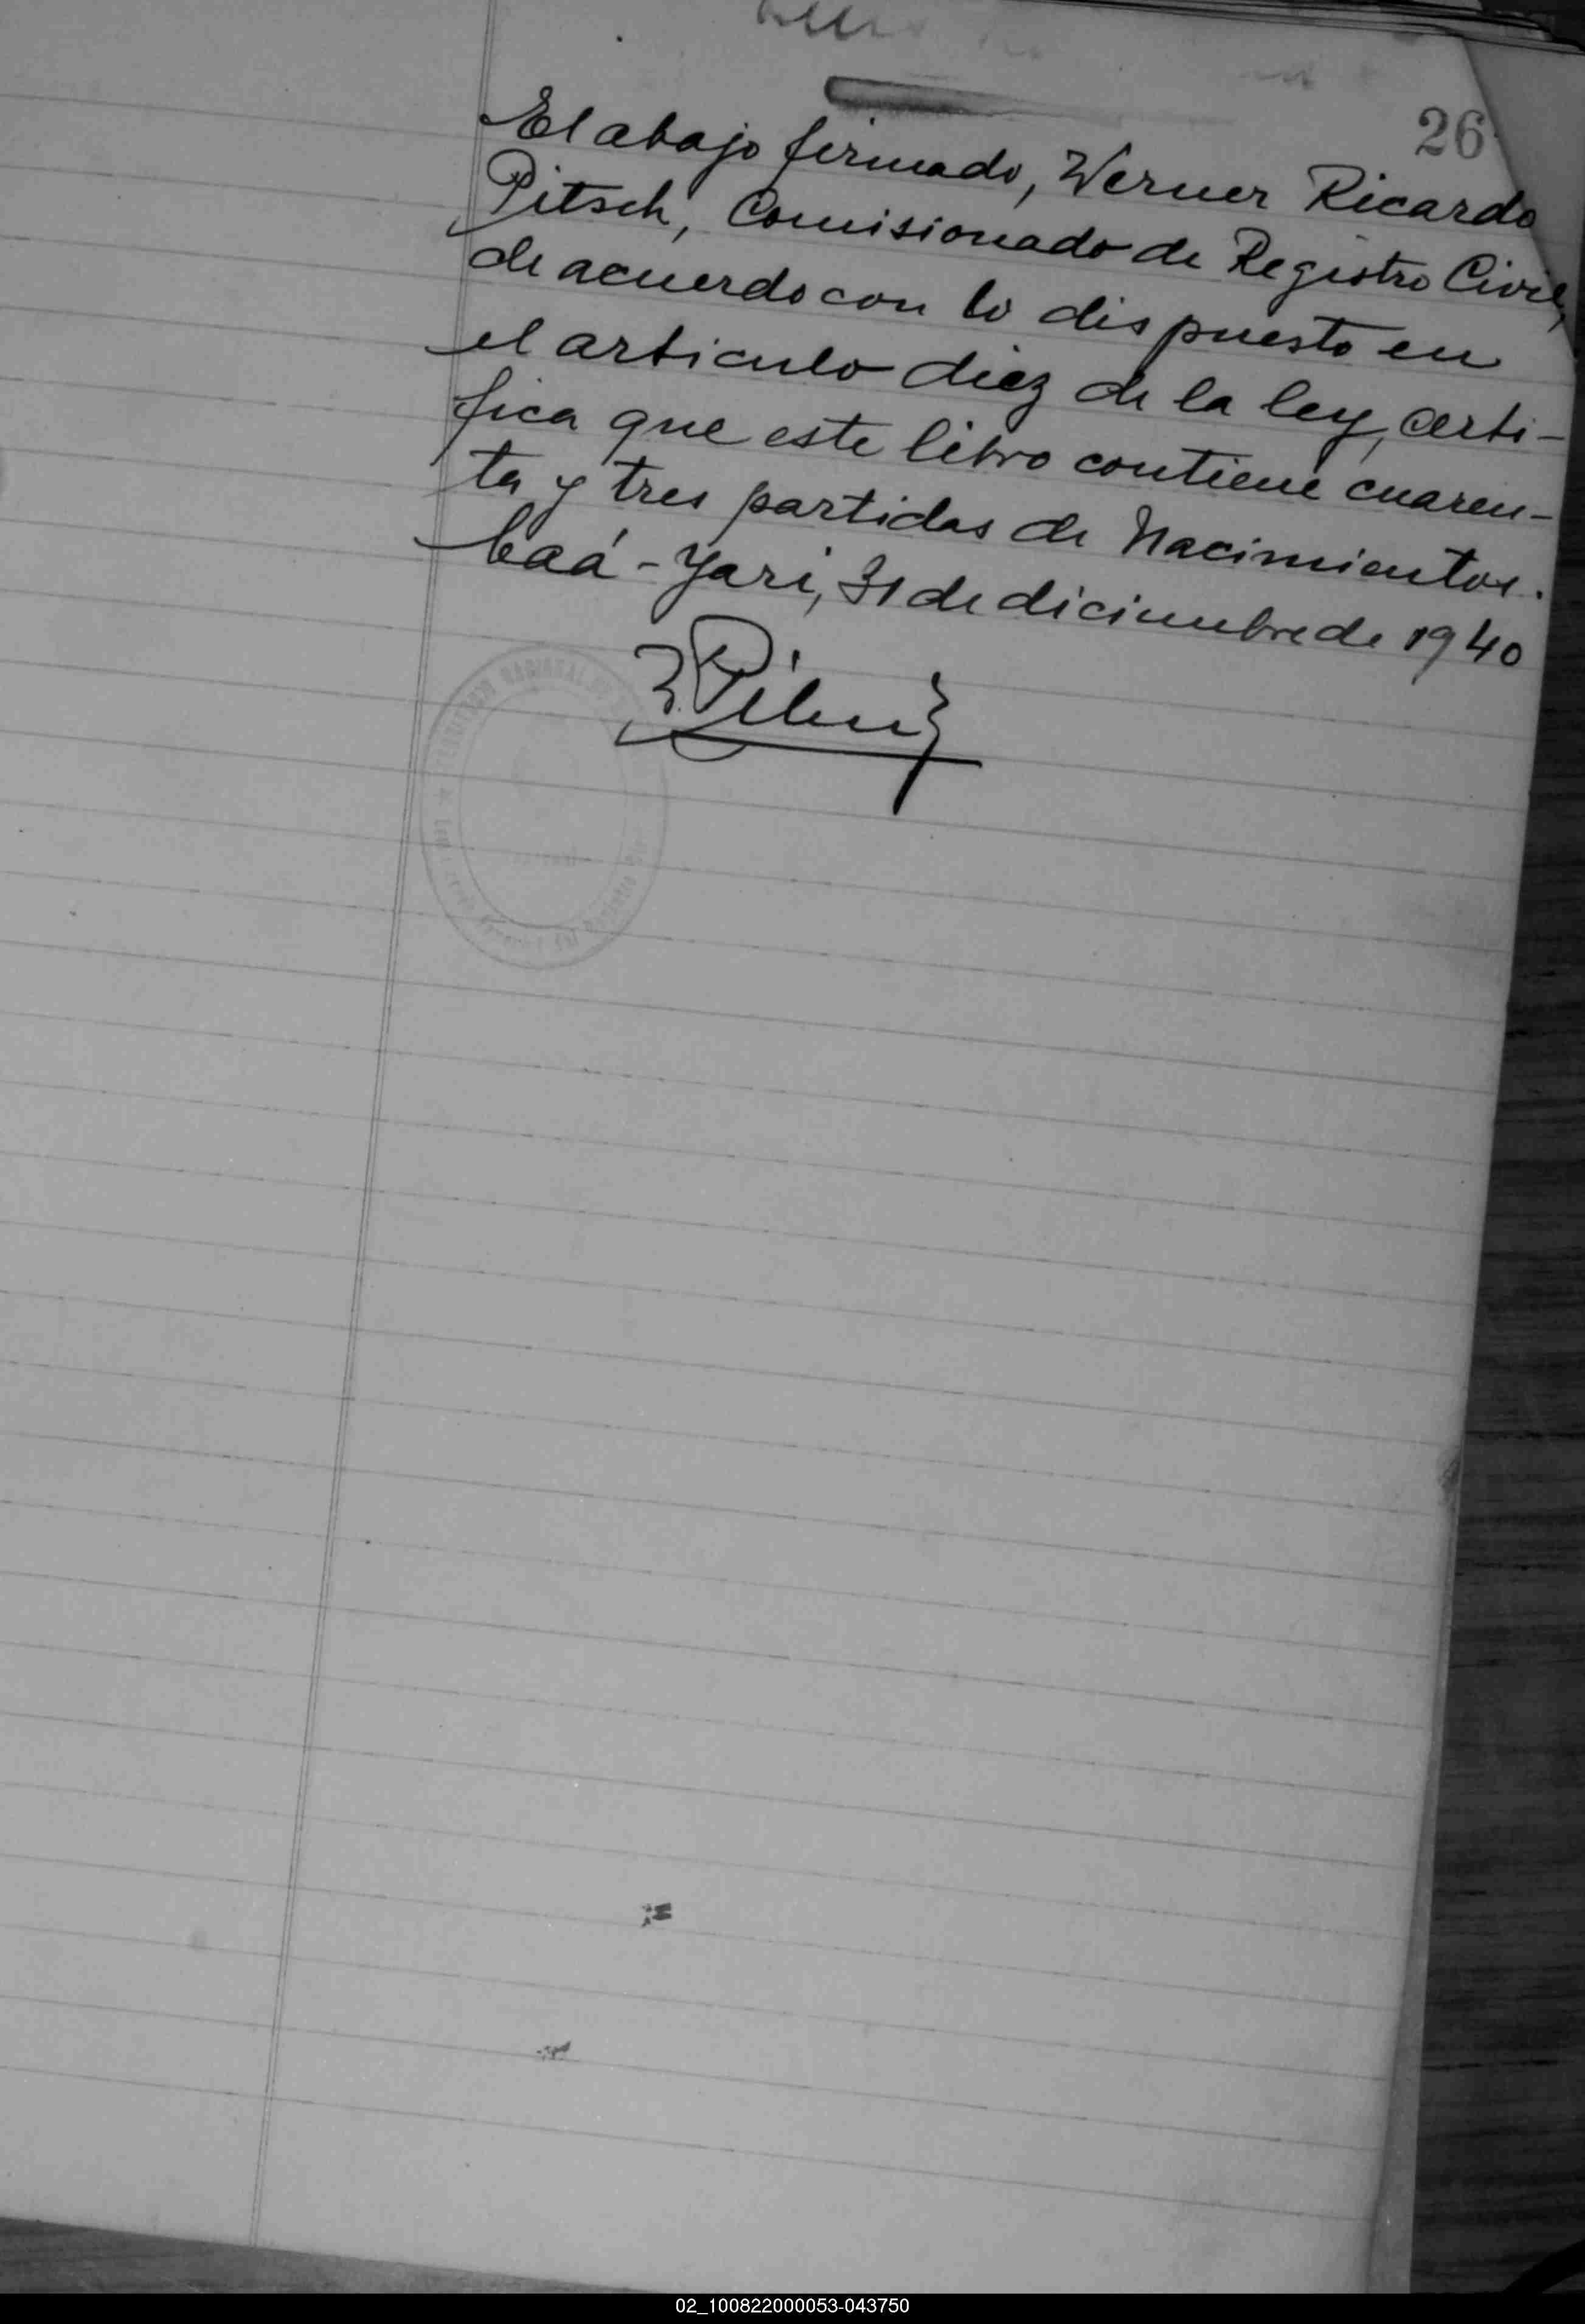 26
El abajo firmado, Werner Ricardo
Pitsch, Comisionado de Registro Civil,
de acuerdo con lo dispuesto en
el articulo diez de la ley, certi-
fica que este libro contiene cuaren-
ta y tres partidas de Nacimientos.
Caá-Yari, 31 de diciembre de 1940
02_100822000053-043750